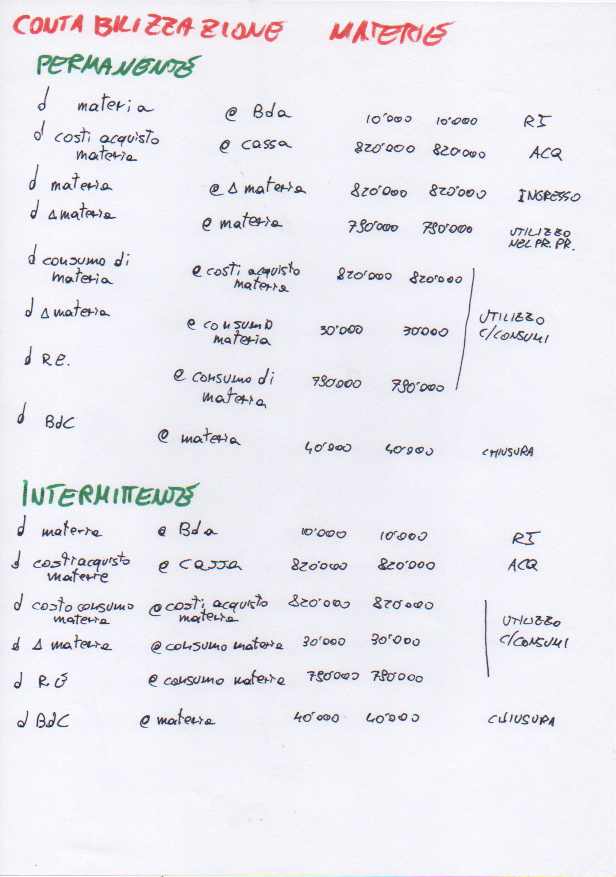 CONTABILIZZAZIONE MATERIE
PERMANENTE
d materia @ Bda 10'000 10'000 RI
d costi acquisto materia @ cassa 820'000 820'000 ACQ
d materia @ Δ materia 820'000 820'000 INGRESSO
d Δ materia @ materia 790'000 790'000 UTILIZZO NEL PR. PR.
d consumo di materia @ costi acquisto materia 820'000 820'000
d Δ materia @ consumo materia 30'000 30'000 UTILIZZO C/CONSUMI
d RE. @ consumo di materia 790'000 790'000
d BdC @ materia 40'000 40'000 CHIUSURA
INTERMITTENTE
d materia @ Bda 10'000 10'000 RI
d costi acquisto materie @ cassa 820'000 820'000 ACQ
d costo consumo materia @ costi acquisto materia 820'000 820'000
d Δ materia @ consumo materia 30'000 30'000 UTILIZZO C/CONSUMI
d RE @ consumo materia 790'000 790'000
d BdC @ materia 40'000 40'000 CHIUSURA